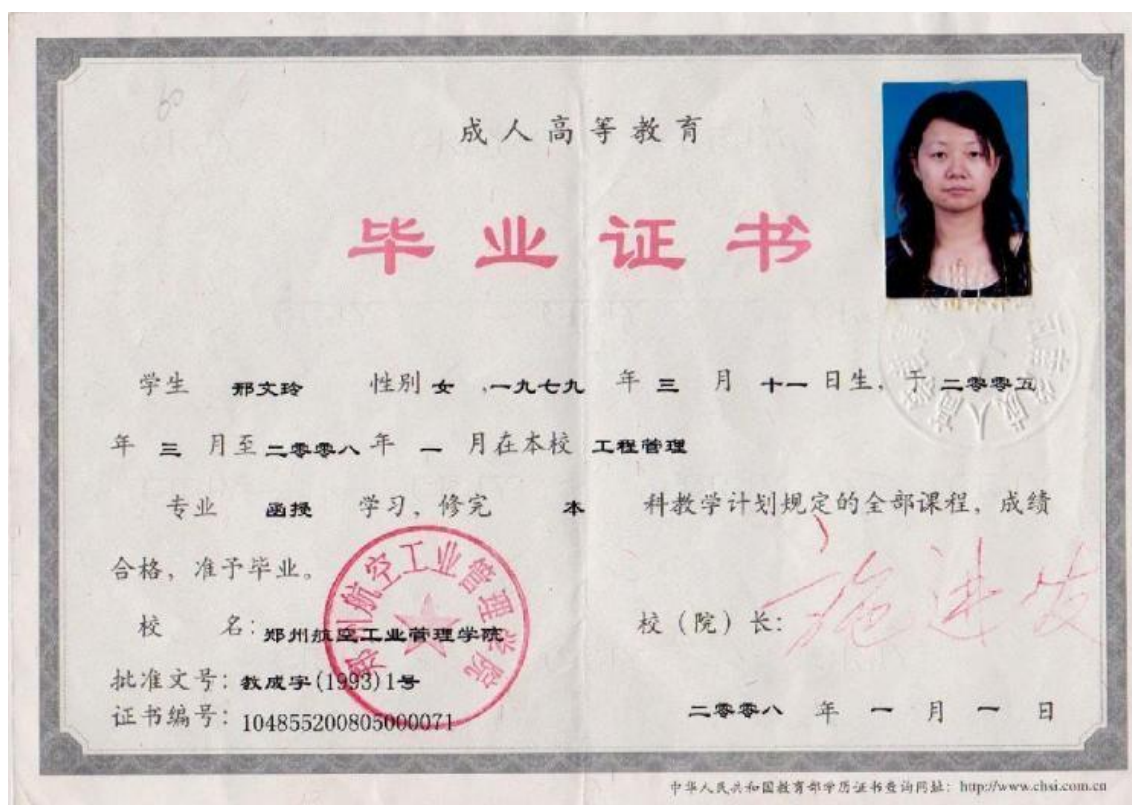 成人高等教育
毕业证书
学生 邢文玲 性别 女 ,一九七九 年 三 月 十一 日生, 于 二零零五
年 三 月至 二零零八 年 一 月在本校 工程管理
专业 函授 学习, 修完 本 科教学计划规定的全部课程, 成绩
合格, 准予毕业。
校 名: 郑州航空工业管理学院
校（院）长: 施进发
批准文号: 教成字(1993)1号
证书编号: 104855200805000071
二零零八 年 一 月 一 日
郑州航空工业管理学院
中华人民共和国教育部学历证书查询网址: http://www.chsi.com.cn